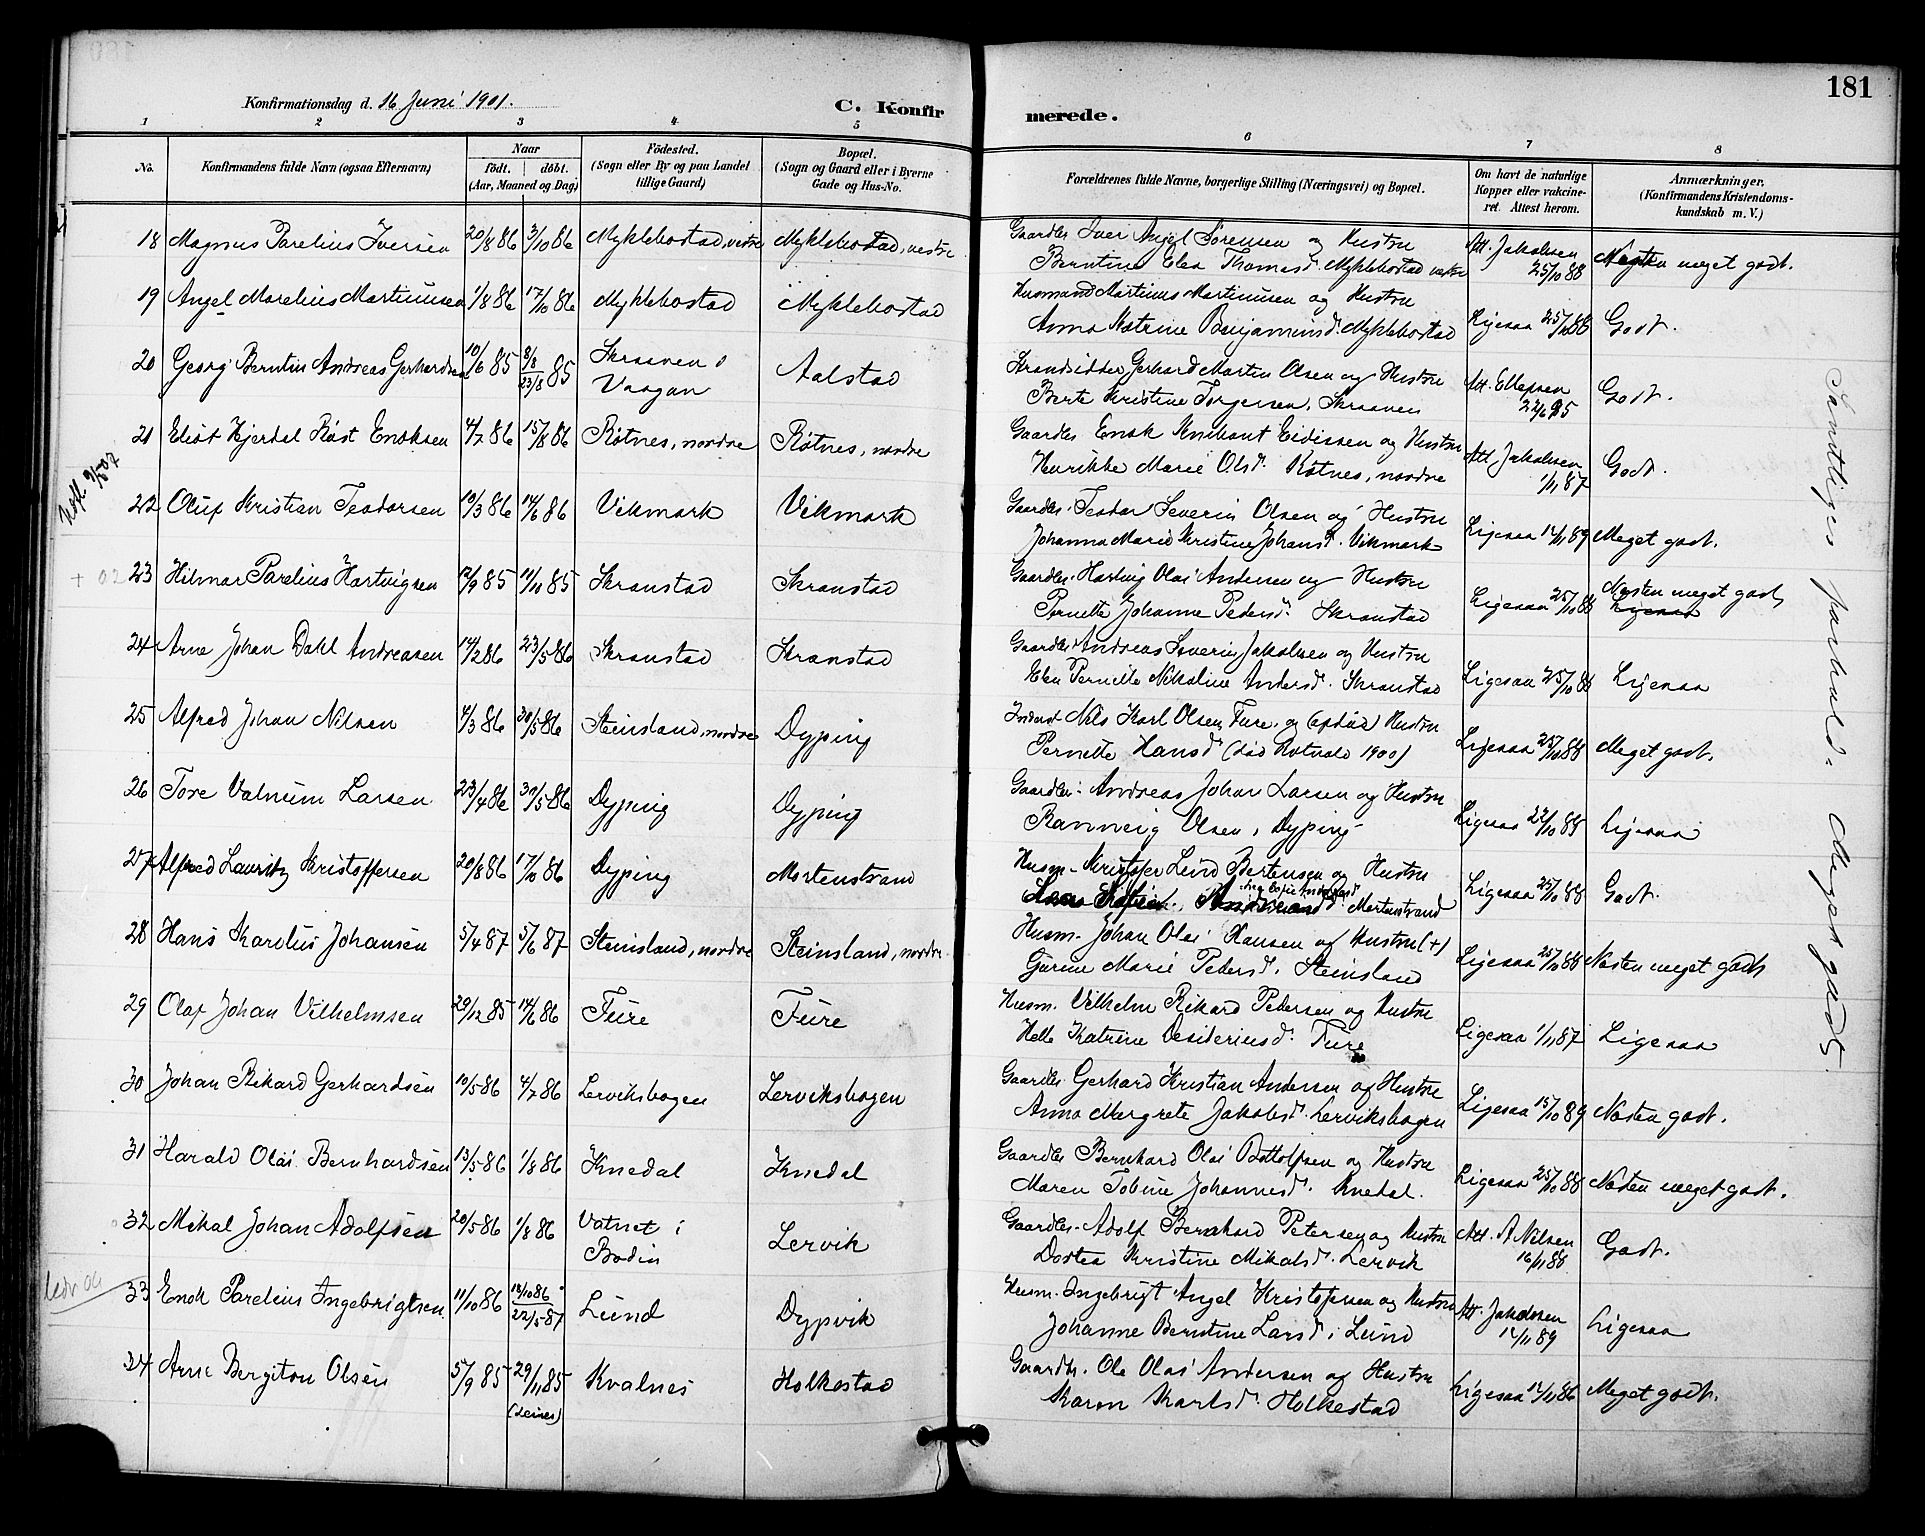 181
Konfirmationsdag d. 16 Juni 1901.
C. Konfirmerede.
1 2 3 4 5 6 7 8
No.
Konfirmandens fulde Navn (ogsaa Efternavn)
Naar
födt. döbt.
(Aar, Maaned og Dag)
Födested.
(Sogn eller By og paa Landet
tillige Gaard)
Bopæl.
(Sogn og Gaard eller i Byerne
Gade og Hus-No.
Forældrenes fulde Navne, borgerlige Stilling (Næringsvei) og Bopæl.
Om havt de naturlige
Kopper eller vakcine-
ret. Attest herom.
Anmærkninger,
(Konfirmandens Kristendoms-
kundskab m. V.)
18 Magnus Parelius Iversen 20/8 86 3/10 86 Myklebostad, vestre Myklebostad, vestre Gaardbr. Iver Angel Sørensen og Hustru Att. Jakobsen Næsten meget godt.
Berntine Elea Thomasd. Myklebostad vestre 25/10 88
19 Angel Marelius Martinusen 1/8 86 17/10 86 Myklebostad Myklebostad Husmand Martinus Martinusen og Hustru
Anna Katrine Benjaminsd. Myklebostad Ligesaa 25/10 88 Godt.
20 Georg Berntin Andreas Gerhardsen 10/6 85 8/8 23/8 85 Skraaven i Aalstad Strandsidder Gerhard Martin Olsen og Hustru Att. Ellefsen Godt.
Vaagan Berte Kristine Torgersen, Skraaven
21 Eliot Hjerdal Røst Enoksen 4/2 86 15/8 86 Røtnes, nordre Røtnes, nordre Gaardbr. Enok Knibant Eidissen og Hustru Att. Jakobsen Godt.
Henrikke Marie Olsd. Røtnes, nordre 1/11 87
22 Oluf Kristian Teodorsen 10/3 86 14/6 86 Vikmark Vikmark Gaardbr. Teodor Severin Olsen og Hustru
Johanna Marie Kristine Johansd. Vikmark Ligesaa 14/11 89 Meget godt.
+ 02 23 Hilmar Parelius Hartvigsen 12/9 85 11/10 85 Skranstad Skranstad Gaardbr. Hartvig Olai Andersen og Hustru Næsten meget godt
Pernette Johanne Pedersd. Skranstad Ligesaa 25/10 88 Ligesaa
24 Arne Johan Dahl Andreasen 14/2 86 23/5 86 Skranstad Skranstad Gaardbr. Andreas Severin Jakobsen og Hustru
Elen Pernille Nikoline Andersd. Skranstad Ligesaa 25/10 88 Ligesaa
25 Alfred Johan Nilsen 4/3 86 30/5 86 Steinsland, nordre Dyping Inderst Nils Karl Olsen, Fure, og (afdøde) Hustru
Pernette Hansd. (død Rotvold 1900) Ligesaa 25/10 88 Meget godt.
26 Tore Valnum Larsen 23/4 86 30/5 86 Dyping Dyping Gaardbr. Andreas Johan Larsen og Hustru
Ranneig Olsen, Dyping Ligesaa 22/10 88 Ligesaa
27 Alfred Lauritz Kristoffersen 20/8 86 17/10 86 Dyping Mortenstrand Husm. Kristoffer Leind Berteusen og Hustru
Mortenstrand Ligesaa 25/10 88 Godt.
28 Hans Karelius Johansen 5/4 87 5/6 87 Steinsland, nordre Steinsland, nordre Husm. Johan Olai Hansen og Hustru (+)
Gurine Marie Pedersd. Steinsland Ligesaa 25/10 88 Næsten meget godt
29 Olaf Johan Vilhelmsen 29/12 85 14/6 86 Fure Fure Husm. Vilhelm Rikard Pedersen og Hustru
Helle Katrine Desideriusd. Fure Ligesaa 1/11 87 Ligesaa
30 Johan Rikard Gerhardsen 10/5 86 4/7 86 Lerviksbogen Lerviksbogen Gaardbr. Gerhard Kristian Andersen og Hustru
Anna Margrete Jakobsd. Lerviksbogen Ligesaa 15/10 89 Næsten godt.
31 Harald Olai Bernhardsen 13/5 86 1/8 86 Knedal Knedal Gaardbr. Bernhard Olai Bottolfsen og Hustru
Maren Tobine Johannesd. Knedal. Ligesaa 25/10 88 Næsten meget godt.
32 Mikal Johan Adolfsen 20/5 86 1/8 86 Vatnet i Lervik Gaardbr. Adolf Bernhard Petersen og Hustru Att. A Nilsen Godt.
Bodin Dortea Kristine Mikalsd. Lervik 16/11 88
33 Enok Parelius Ingebrigtsen 11/10 86 14/10 86 22/5 87 Lund Dypvik Husm. Ingebrigt Angel Kristofersen og Hustru Att. Jakobsen
Johanne Berntine Larsd. Lund 14/11 89 Ligesaa
34 Arne Bergiton Olsen 5/9 85 29/11 85 Kvalnes Holkestad Gaardbr. Ole Olai Andersen og Hustru
(Leines) Karen Karlsd. Holkestad Ligesaa 14/11 86 Meget godt.
Samtliges forhold: Meget godt.